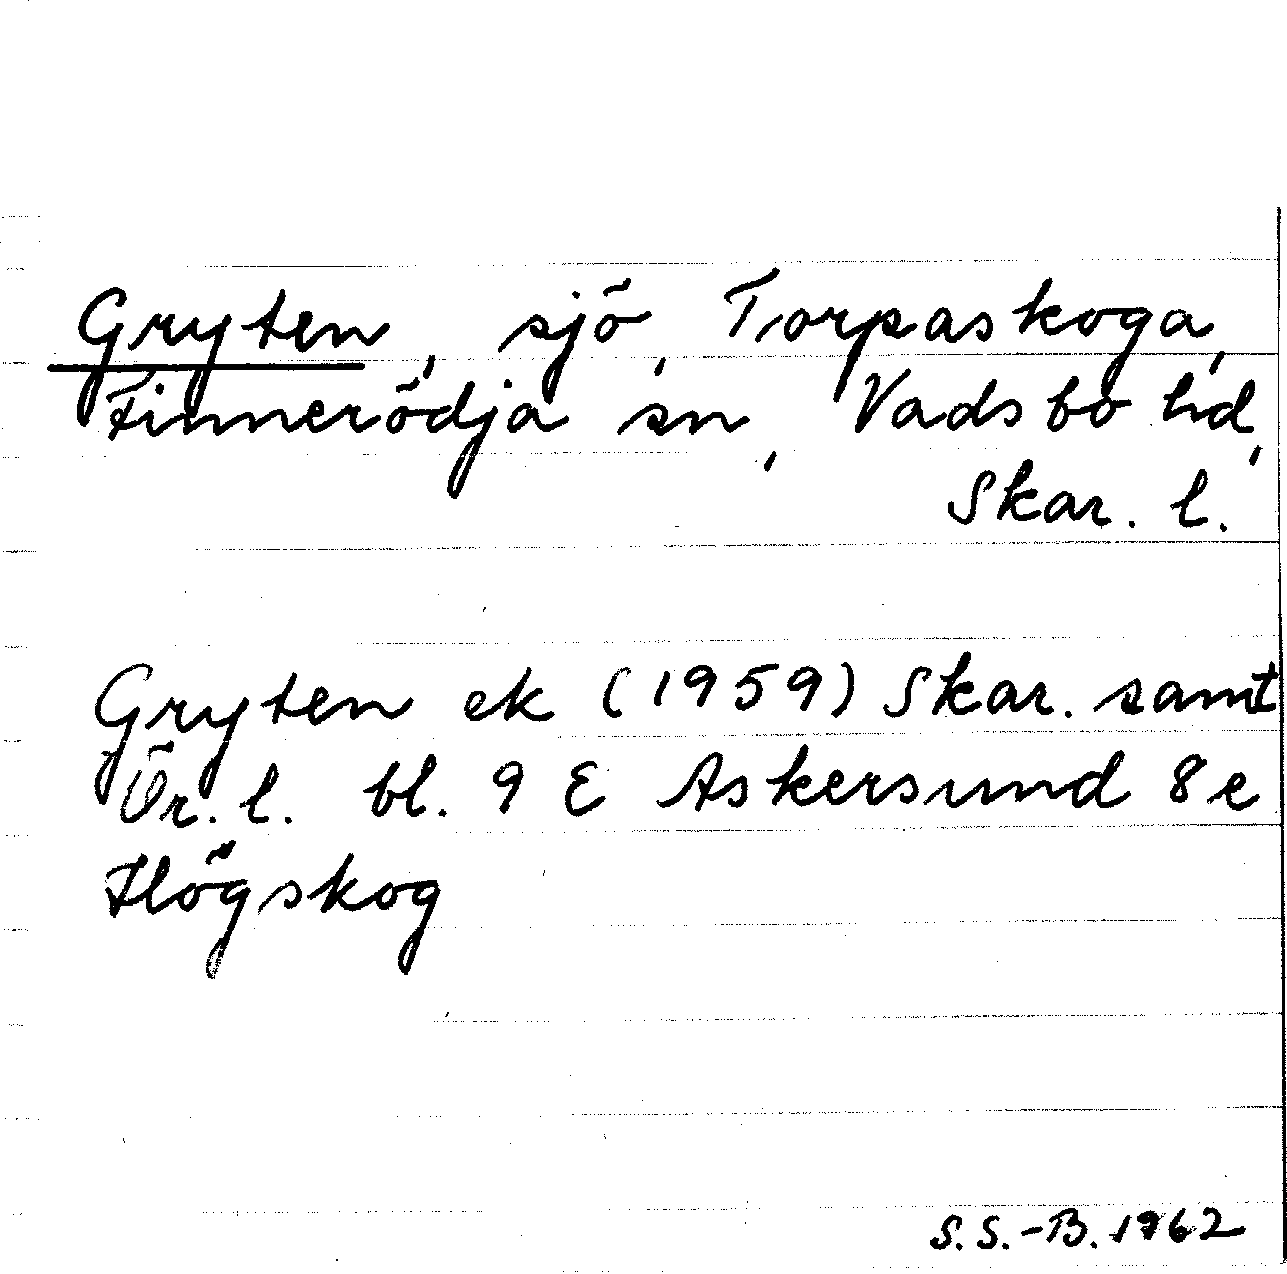 Gryten, sjö, Torpaskoga,
Finnerödja sn, Vadsbo hd,
Skar. l.
Gryten ek (1959) Skar. samt
Ör. l. bl. 9 E Askersund 8 e
Högskog
S.S.-B. 1962